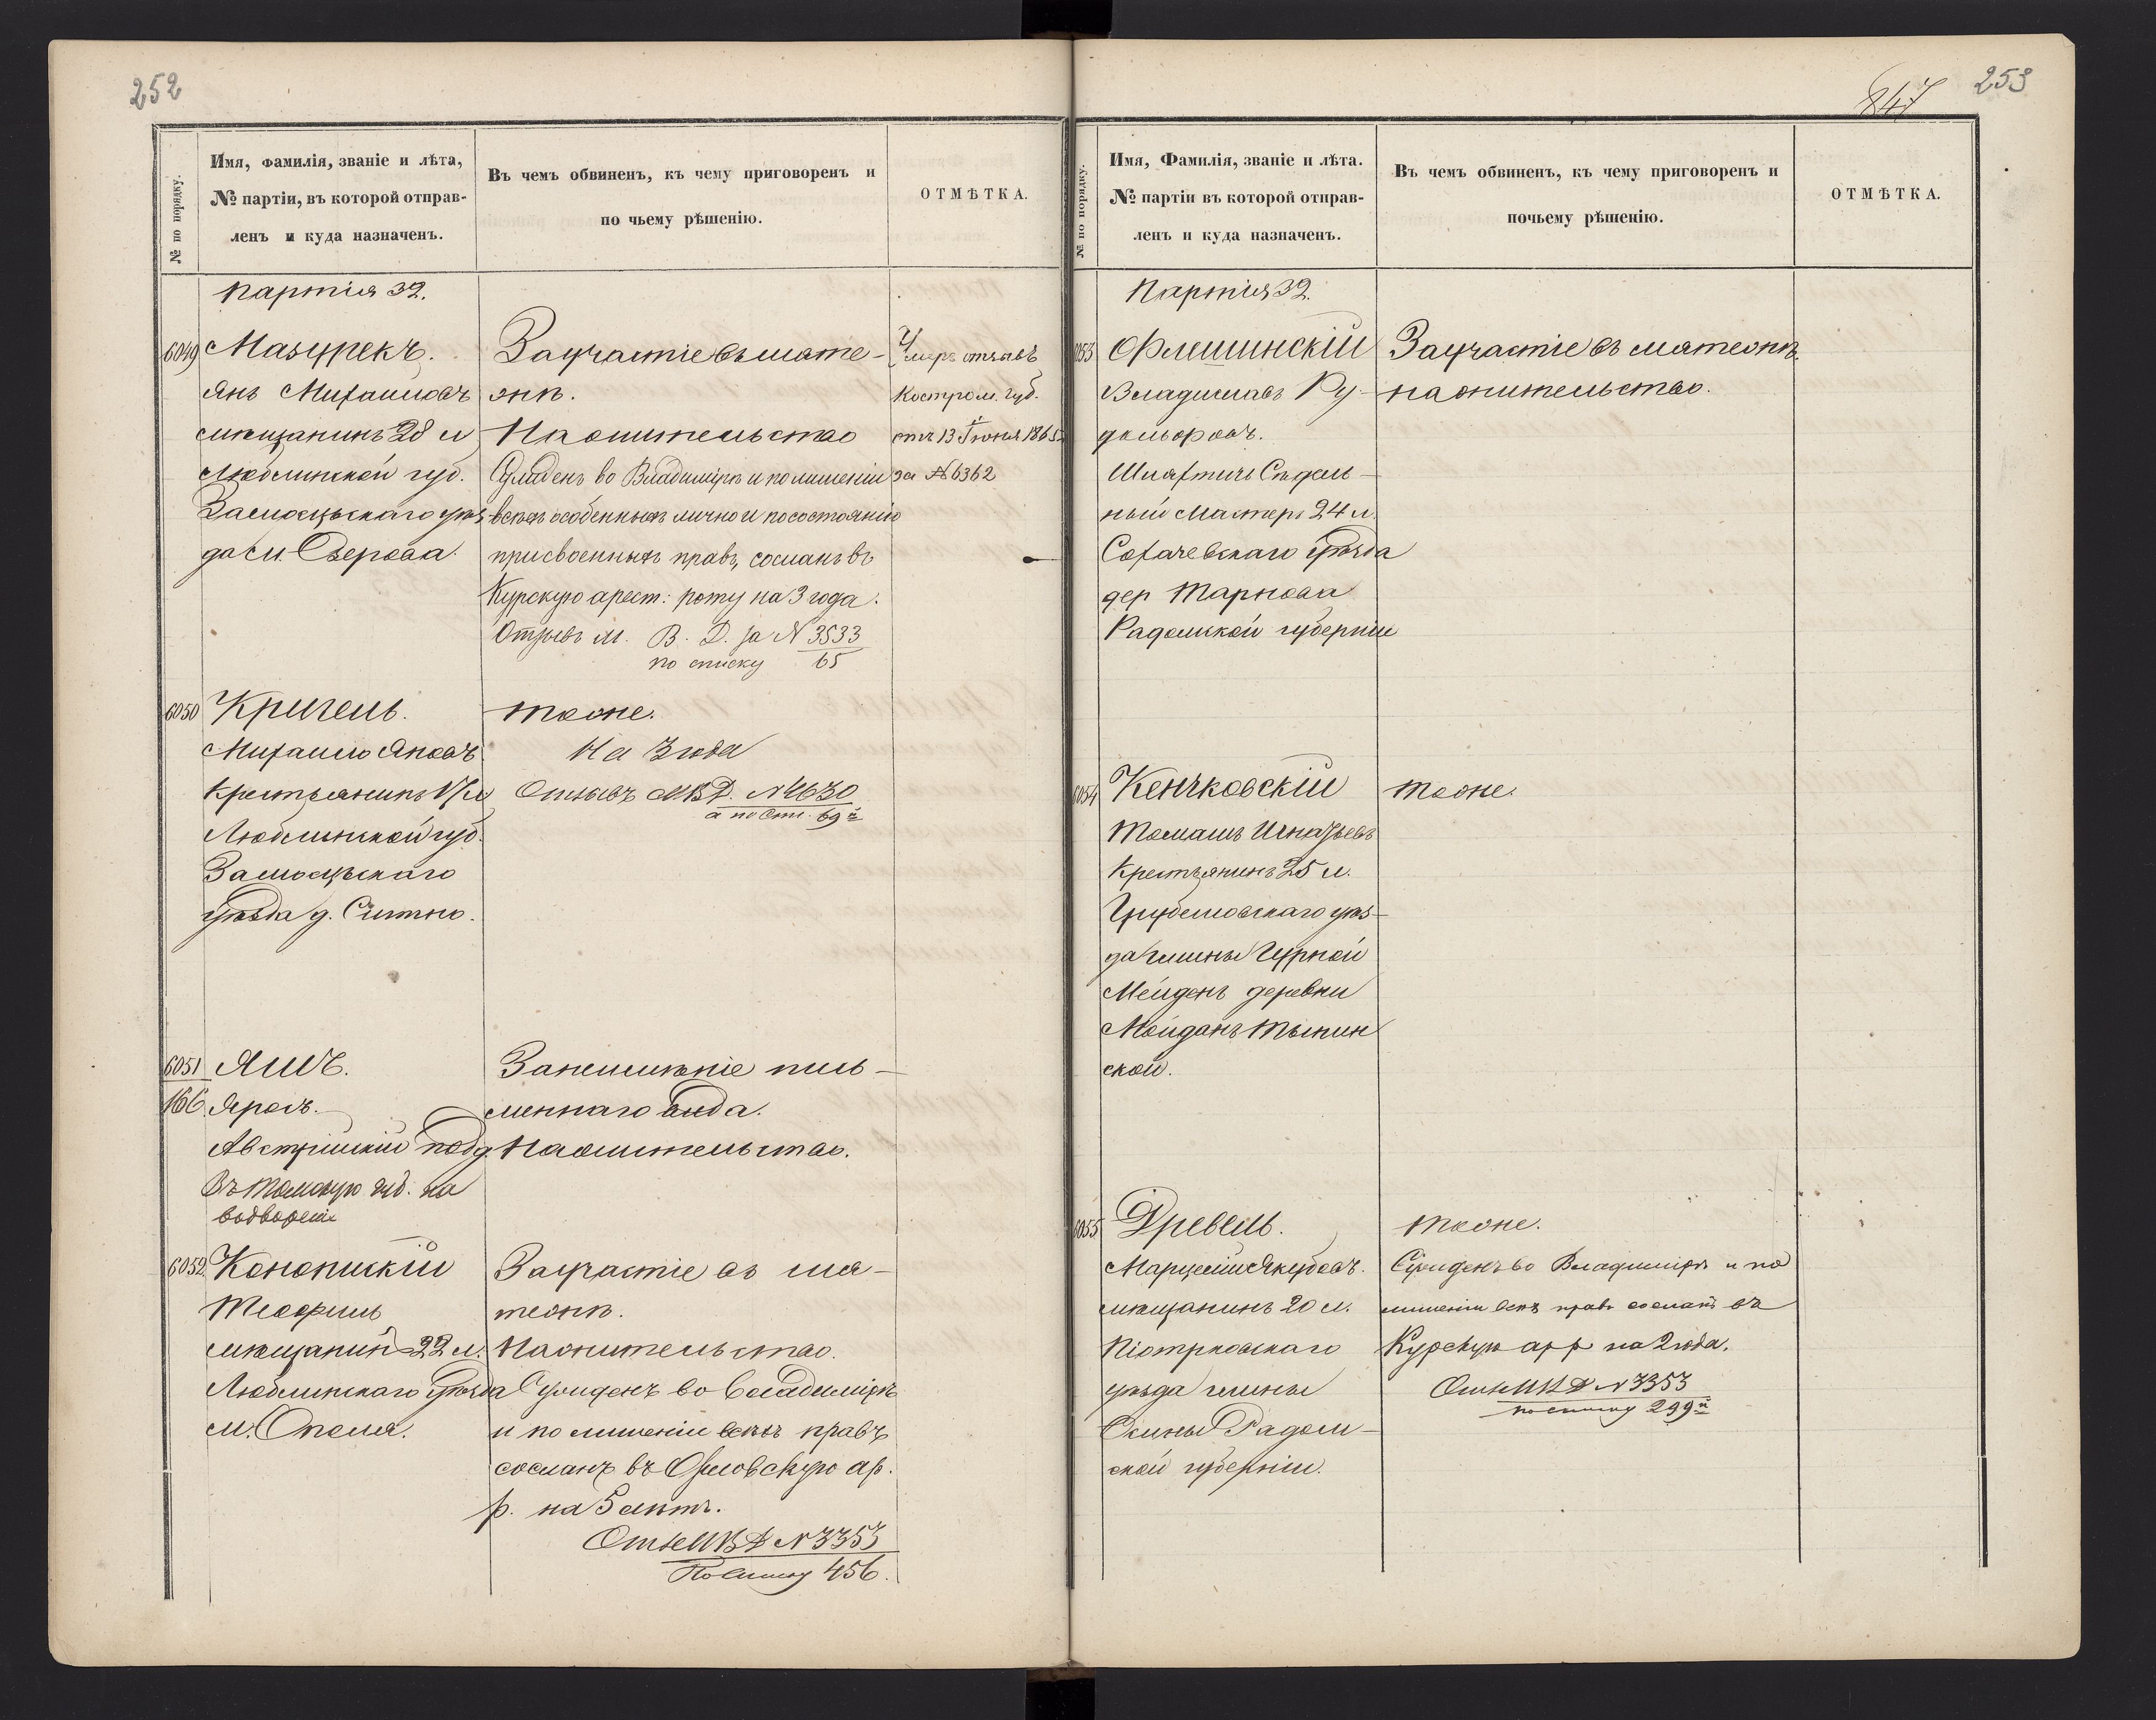 252
№ по порядку.
Имя, фамилія, званіе и лѣта,
№ партіи, въ которой отправ-
ленъ и куда назначенъ.
Въ чемъ обвиненъ, къ чему приговоренъ и
по чьему рѣшенію.
ОТМѢТКА.
Партія 32.
6049
Мазурекъ.
Янъ Михайловъ
мѣщанинъ 28 л
Люблинской губ.
Замосцьскаго уѣз
да
За участіе въ мяте-
жѣ.
На жительство
Судебенъ во Владимірѣ и по лишеніи
всѣхъ особенныхъ лично и по состоянію
присвоенныхъ правъ, сосланъ въ
Курскую арест: роту на 3 года.
Отзывъ М. В. Д. за N 3533
по списку 65
Умеръ отзывъ
Костром. губ.
отъ 13 Іюня 1865
за № 6362
6050
Кригель.
Михаилъ Яновъ
Крестьянинъ 17 л
Люблинской губ.
Замосцьскаго
уѣзда д. Ситно.
тоже.
На 3 года
Отзывъ М.В.Д. N 4630
а по Спи. 69й
6051
166
Яшъ.
Ярой.
Австрійскій подд.
Въ Томскую губ. на
водвореніе
За неимѣніе пись-
меннаго вида.
На жительство.
6052
Конопискій
Теофиль
мѣщанинъ 22 л.
Люблинскаго Уѣзда
м. Ополя.
За участіе въ мя-
тежѣ.
На жительство.
Суждѣнъ во Владимірѣ
и по лишеніи всѣхъ правъ
сосланъ въ Орловскую ар.
р. на 5 лѣтъ.
Отз МВД N 3353
По списку 456.
847
253
№ по порядку.
Имя, Фамилія, званіе и лѣта.
№ партіи въ которой отправ-
ленъ и куда назначенъ.
Въ чемъ обвиненъ, къ чему приговоренъ и
почьему рѣшенію.
ОТМѢТКА.
Партія 32.
6053
Флешинскій
Владиславъ Ру-
дольфовъ.
Шляхтичъ Сѣдель-
ный Мастеръ 24 л.
Сохачевскаго уѣзда
дер Тарнова
Радомской губерніи
За участіе въ мятежѣ.
на жительство.
6054
Кенчковскій
Томашъ Игнатьевъ
Крестьянинъ 25 л.
Грубешовскаго уѣз-
да гмины
Мейденъ деревни
Мойданъ Тынин
ской.
тоже.
6055
Древель.
Марцелій Якубовъ.
мѣщанинъ 20 л.
Піотрковскаго
уѣзда гмины
Радом-
ской губерніи.
тоже.
Сужденъ во Владимірѣ и по
лишеніи всѣхъ правъ сосланъ въ
Курскую а р р на 2 года.
Отз МВД N 3353
по списку 299й